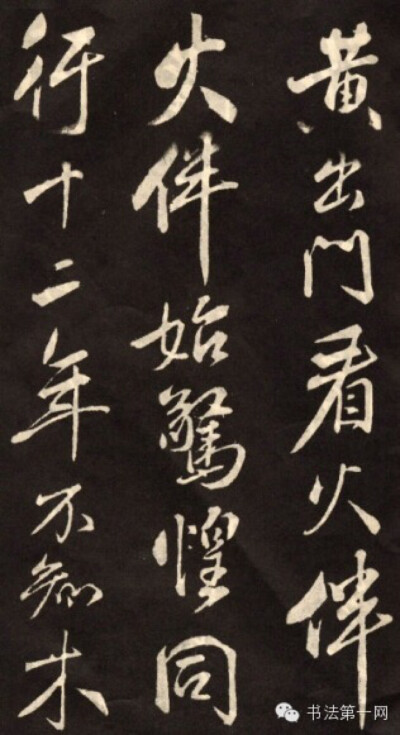 黄出門看火伴
火伴始驚惶同
行十二年不知木
书法第一网